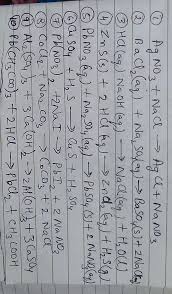 ① AgNO3 + NaCl → AgCl + NaNO3
② BaCl2(aq) + Na2SO4(aq) → BaSO4(s) + 2NaCl(aq)
③ HCl(aq) NaOH(aq) → NaCl(aq) + H2O(l)
④ ZnS(s) + 2HCl(aq) → ZnCl2(aq) + H2S(g)
⑤ PbNO3(aq) + Na2SO4(aq) → PbSO4(s) + 2NaNO3(aq)
⑥ CuSO4 + H2S → CuS + H2SO4
⑦ Pb(NO3)2 + 2NaI → PbI2 + 2NaNO3
⑧ CaCl2 + Na2CO3 → CaCO3 + 2NaCl
⑨ Al2(SO4)3 + 3Ca(OH)2 → 2Al(OH)3 + 3CaSO4
⑩ Pb(CH3COO)2 + 2HCl → PbCl2 + CH3COOH